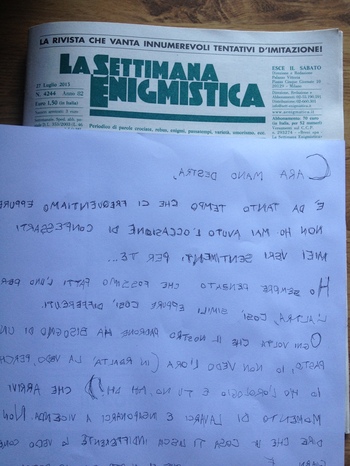 LA RIVISTA CHE VANTA INNUMEREVOLI TENTATIVI D'IMITAZIONE!
LA SETTIMANA
ENIGMISTICA
Luglio 2013
N. 4244 Anno 82
Euro 1,50 (in Italia)
ESCE IL SABATO
Direzione e Redazione
Palazzo Vittoria
20129 - Milano
Periodico di parole crociate, rebus, enigmi, passatempi, varietà, umorismo, ecc.
CARA MANO DESTRA,
È DA TANTO TEMPO CHE CI FREQUENTIAMO EPPURE
NON HO MAI AVUTO L'OCCASIONE DI CONFESSARTI
MIEI VERI SENTIMENTI PER TE...
HO SEMPRE PENSATO CHE FOSSIMO FATTI L'UNO PER
L'ALTRA, COSÌ SIMILI EPPURE COSÌ DIFFERENTI.
OGNI VOLTA CHE IL NOSTRO PADRONE HA BISOGNO DI UN
PASTO, IO NON VEDO L'ORA (IN REALTÀ, LA VEDO PERCHÉ
IO HO L'OROLOGIO E TU NO, AH AH!) CHE ARRIVI
MOMENTO DI LAVARCI E INSAPONARCI A VICENDA. NON
DIRE CHE LA COSA TI LASCIA INDIFFERENTE IO VEDO COME